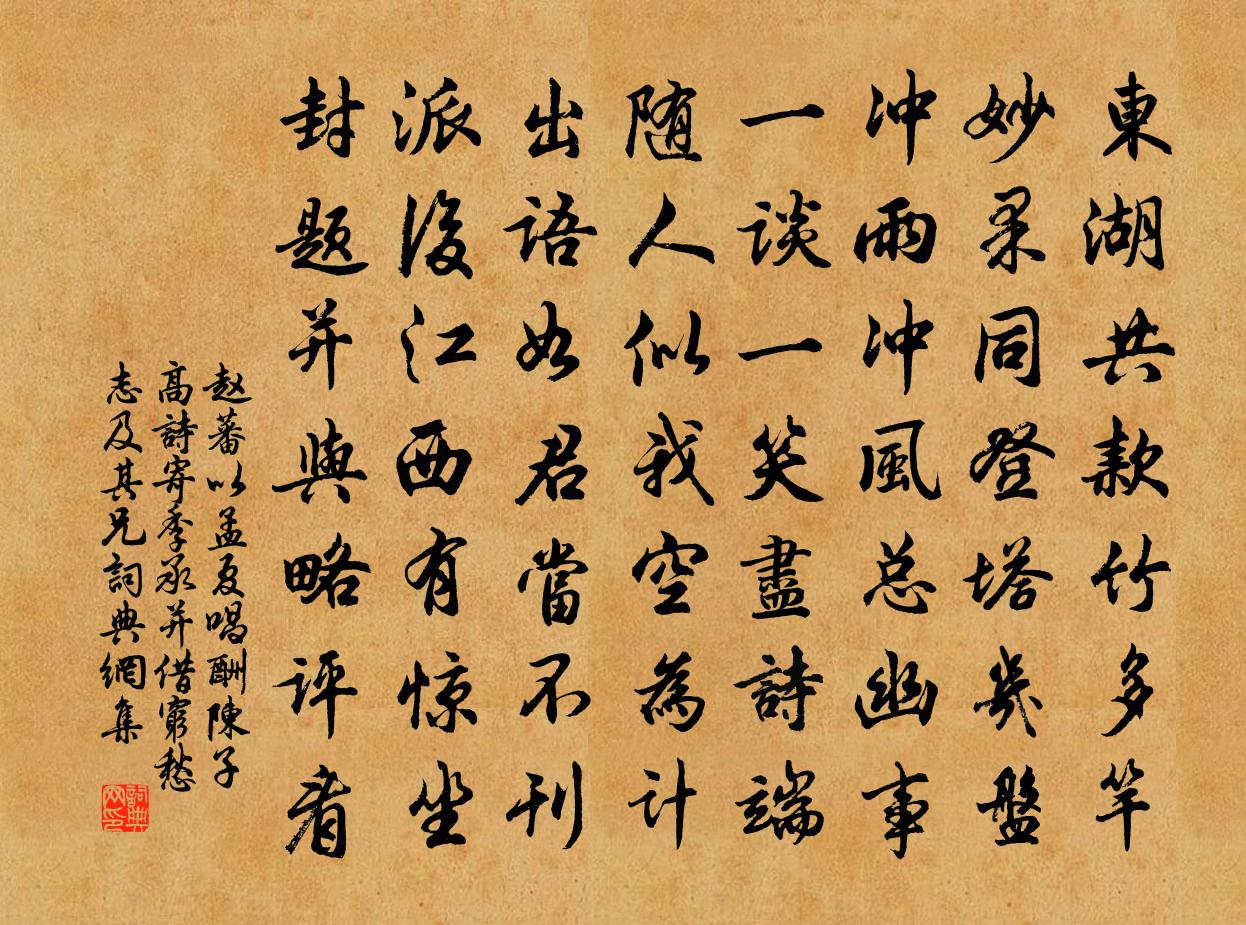 東湖共款竹多竿
妙果同登塔幾盤
冲雨冲風总幽事
一談一笑盡詩端
随人似我空為計
出語如君當不刊
派後江西有惊坐
封题并與略评看
赵蕃以孟夏唱酬陳子
高詩寄季承并借窮愁
志及其兄詞典網集
詞典网印